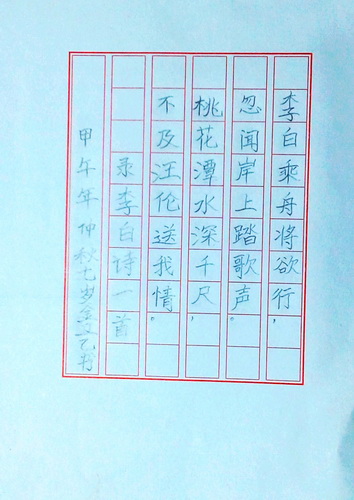 李白乘舟将欲行，
忽闻岸上踏歌声。
桃花潭水深千尺，
不及汪伦送我情。
录李白诗一首
甲午年仲秋七岁金文乙书